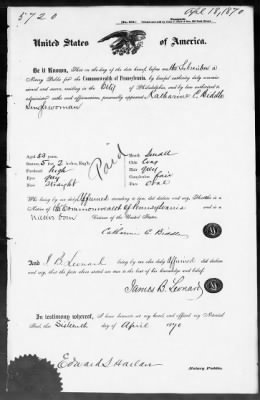 5720
Apl 18, 1870
United States of America.
Be it Known, That on the day of the date hereof, before me the Subscriber a
Notary Public for the Commonwealth of Pennsylvania, by lawful authority duly commissioned
and sworn, residing in the City of Philadelphia, and by law authorized to
administer oaths and affirmations, personally appeared Katharine C. Biddle
Singlewoman
Paid
Aged 53 years. Mouth Small
Stature 5 feet 2 inches, Eng. Chin Long
Forehead high Hair grey
Eyes grey Complexion fair
Nose Straight Face oval
Who being by me duly Affirmed according to law, did declare and say, That she is a
Native of the Commonwealth of Pennsylvania and is a
native born Citizen of the United States.
Catharine C. Biddle
And J B Leonard being by me also duly Affirmed did declare
and say, that the facts above stated are true to the best of his knowledge and belief.
James B. Leonard
In testimony whereof, I have hereunto set my hand and affixed my Notarial
Seal, this Sixteenth day of April 1870
Edward S Harlan
Notary Public.